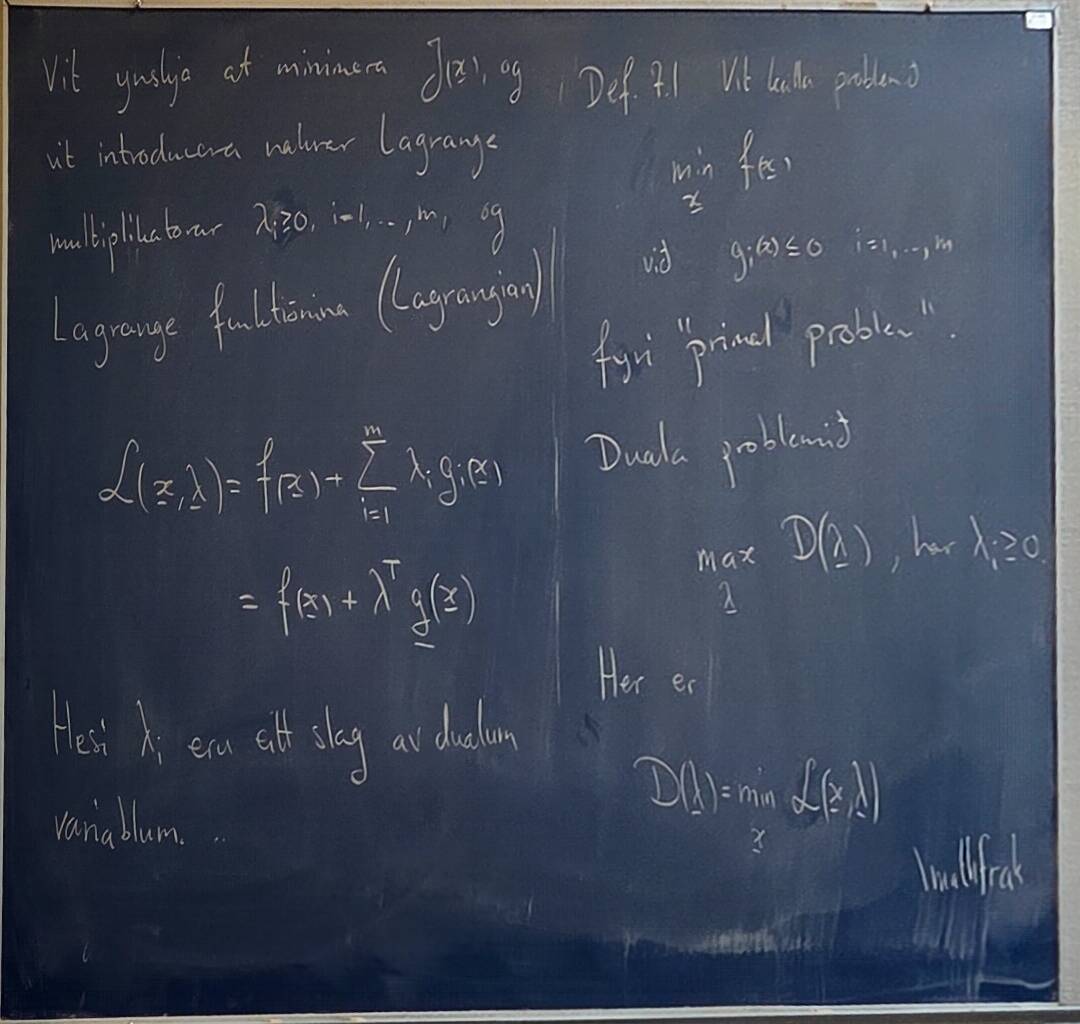 Vit ynskja at minimera J(x), og
vit introducera nakrar Lagrange
multiplikatorar λᵢ≥0, i=1,...,m, og
Lagrange funktiónina (Lagrangian)
ℒ(x,λ) = f(x) + ∑_{i=1}^{m} λᵢ gᵢ(x)
= f(x) + λᵀ g(x)
Hesi λᵢ eru eitt slag av dualum
variablum. ..
Def. 7.1 Vit kalla problemið
min f(x)
x
við gᵢ(x) ≤ 0 i=1,...,m
fyri "primal problem".
Duala problemið
max D(λ), har λᵢ≥0.
λ
Her er
D(λ) = min ℒ(x,λ)
x
\mathfrak